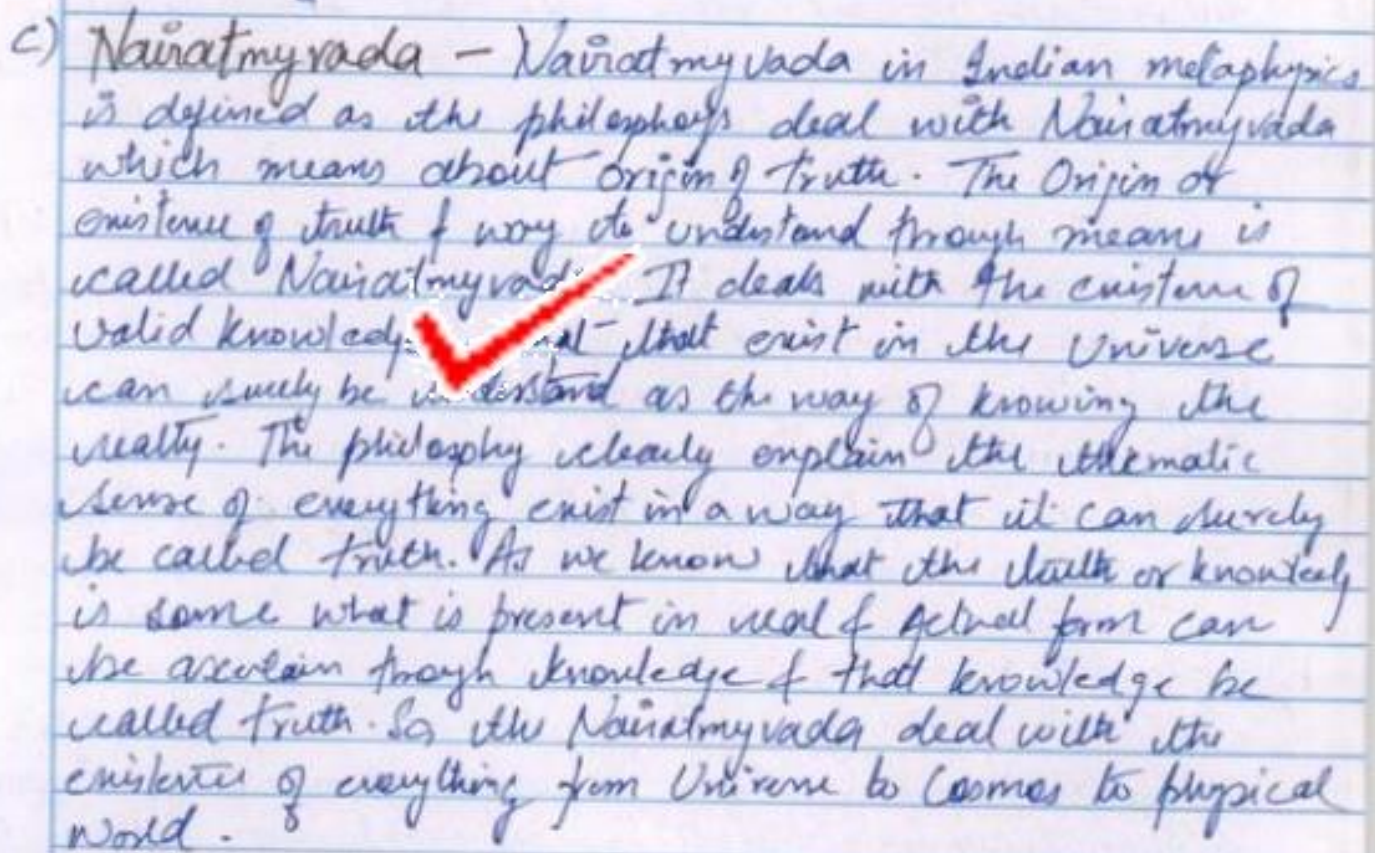 c) Nairatmyvada - Nairatmyvada in Indian metaphysics
is defined as the philosphoys deal with Nairatmyvada
which means about origin of truth. The Origin or
existence of truth & way to understand through means is
called Nairatmyvad. It deals with the existence of
valid knowledge that exist in the Universe
can surely be understand as the way of knowing the
realty. The philosophy clearly explain the thematic
sense of everything exist in a way that it can surely
be called truth. As we know that the truth or knowledg
is same what is present in real & Actual form can
be ascertain through knowledge & that knowledge be
called truth. So the Nairatmyvada deal with the
existence of everything from Universe to Cosmos to physical
World.